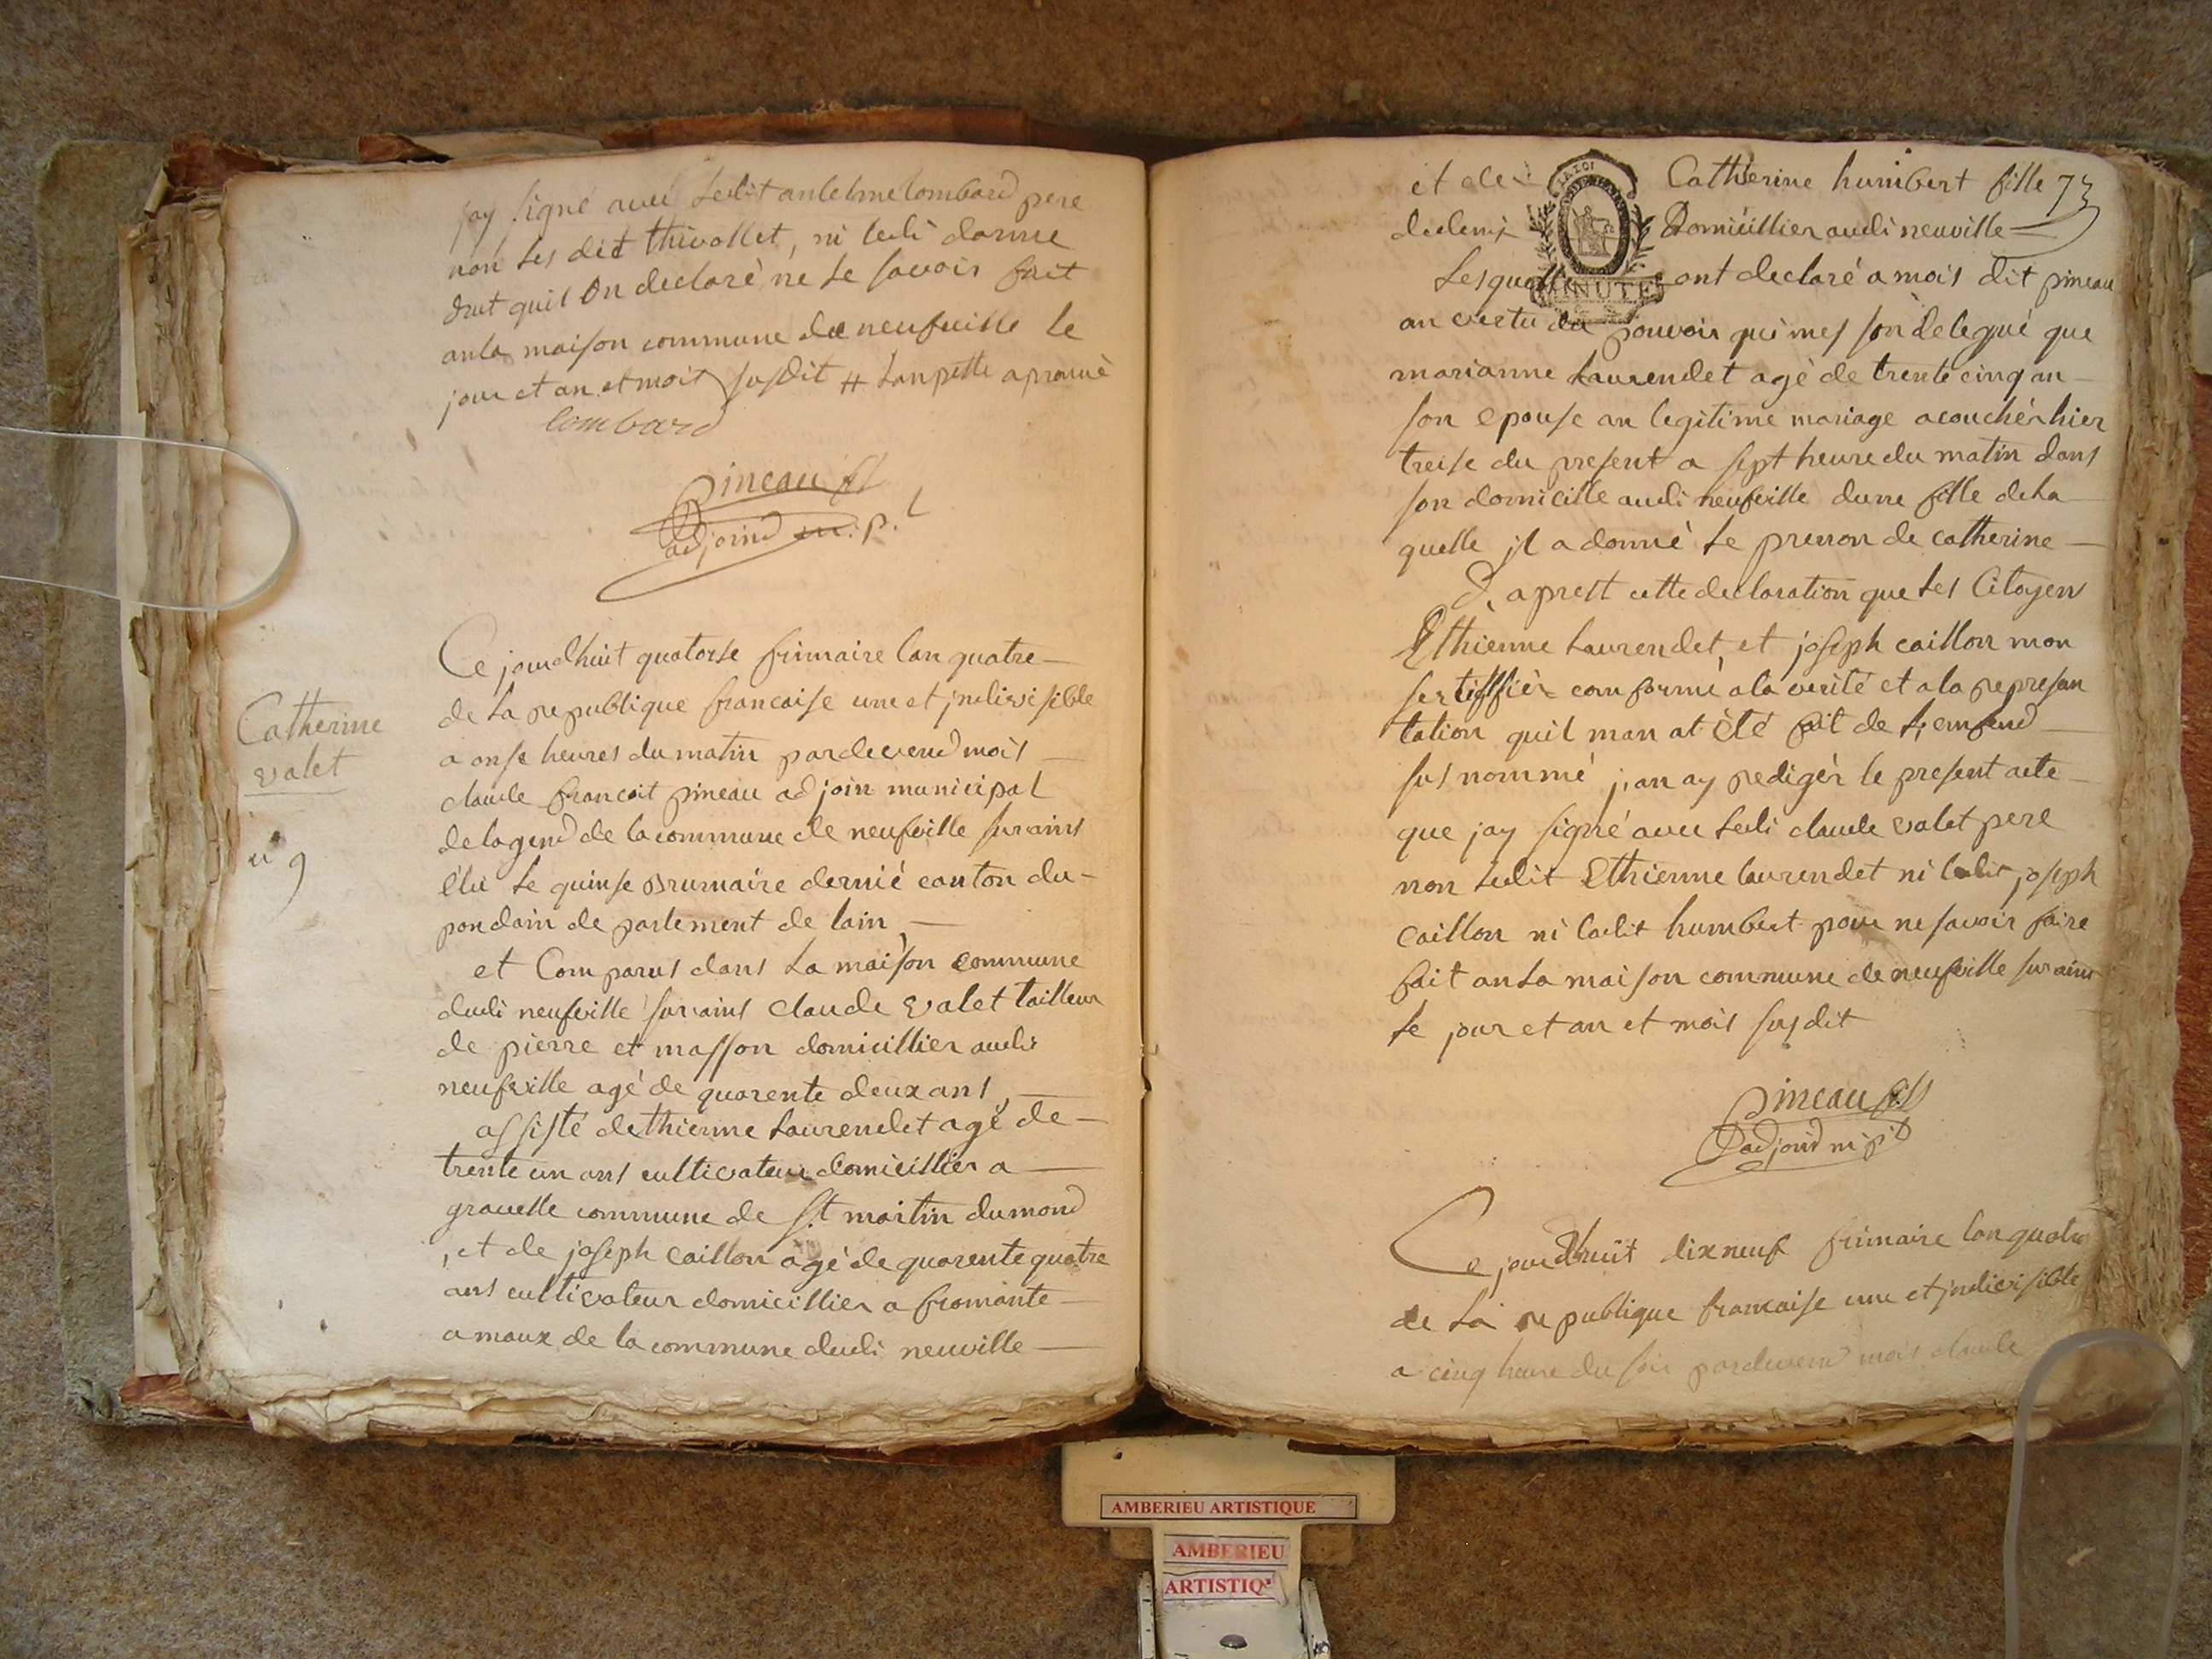 jay signé avec ledit anthelme lombard pere
non les dit thivollet, ni ledi danne
drut quil On declaré ne le savoir fait
an la maison commune de neufville le
jour et an et mois susdit # lanpelle aprouvè
lombard
Pineau fils
adjoind m.p.l
Ce jourdhuit quatorse frimaire lan quatre
de la republique francaise une et jndivisible
a onse heures du matin pardevend mois
claude francoit pineau adjoin municipal
de lagend de la commune de neufville surains
élu le quinse Brumaire dernié canton du
pondain departement de lain
et Comparus dans la maison commune
dudi neufville surains claude valet tailleur
de pierre et masson domicillier audit
neufville agé de quarente deux ans
assisté dethienne laurendet agé de
trente un ans cultivateur domicillier a
gravelle commune de St martin dumond
, et de joseph caillon agé de quarente quatre
ans cultivateur domicillier a fromante
a maux de la commune dudi neuville
Catherine
valet
n 9
et de Catherine humbert fille 73
LA LOI
Domicillier audi neuville
Lesquelle ont declaré a mois dit pineau
MINUTE
an vertu du pouvoir qui mes son delegué que
marianne Laurendet agé de trente cinq an
son epouse an legitime mariage acouchér hier
treise du present a sept heure du matin dans
son domicille audi neufville dune fille de la
quelle jl a donné le prenon de catherine
d, aprest cette declaration que les Citoyen
Ethienne laurendet, et joseph caillon mon
sertiffièr conformé a la verité et a la represan
tation quil man at été fait de lenfend
sus nommé j, an ay redigér le present acte
que jay signé avec ledi claude valet pere
non ledit Ethienne laurendet ni ledit joseph
caillon ni ladit humbert pour ne savoir faire
fait an la maison commune de neufville surains
le jour et an et mois susdit
Pineau fils
adjoid m.p.l
Ce jourdhuit dixneuf frimaire lan quatre
de la republique francaise une et jndivisible
a cinq heure du soir pardevend mois claude
AMBERIEU ARTISTIQUE
AMBERIEU
ARTISTIQ